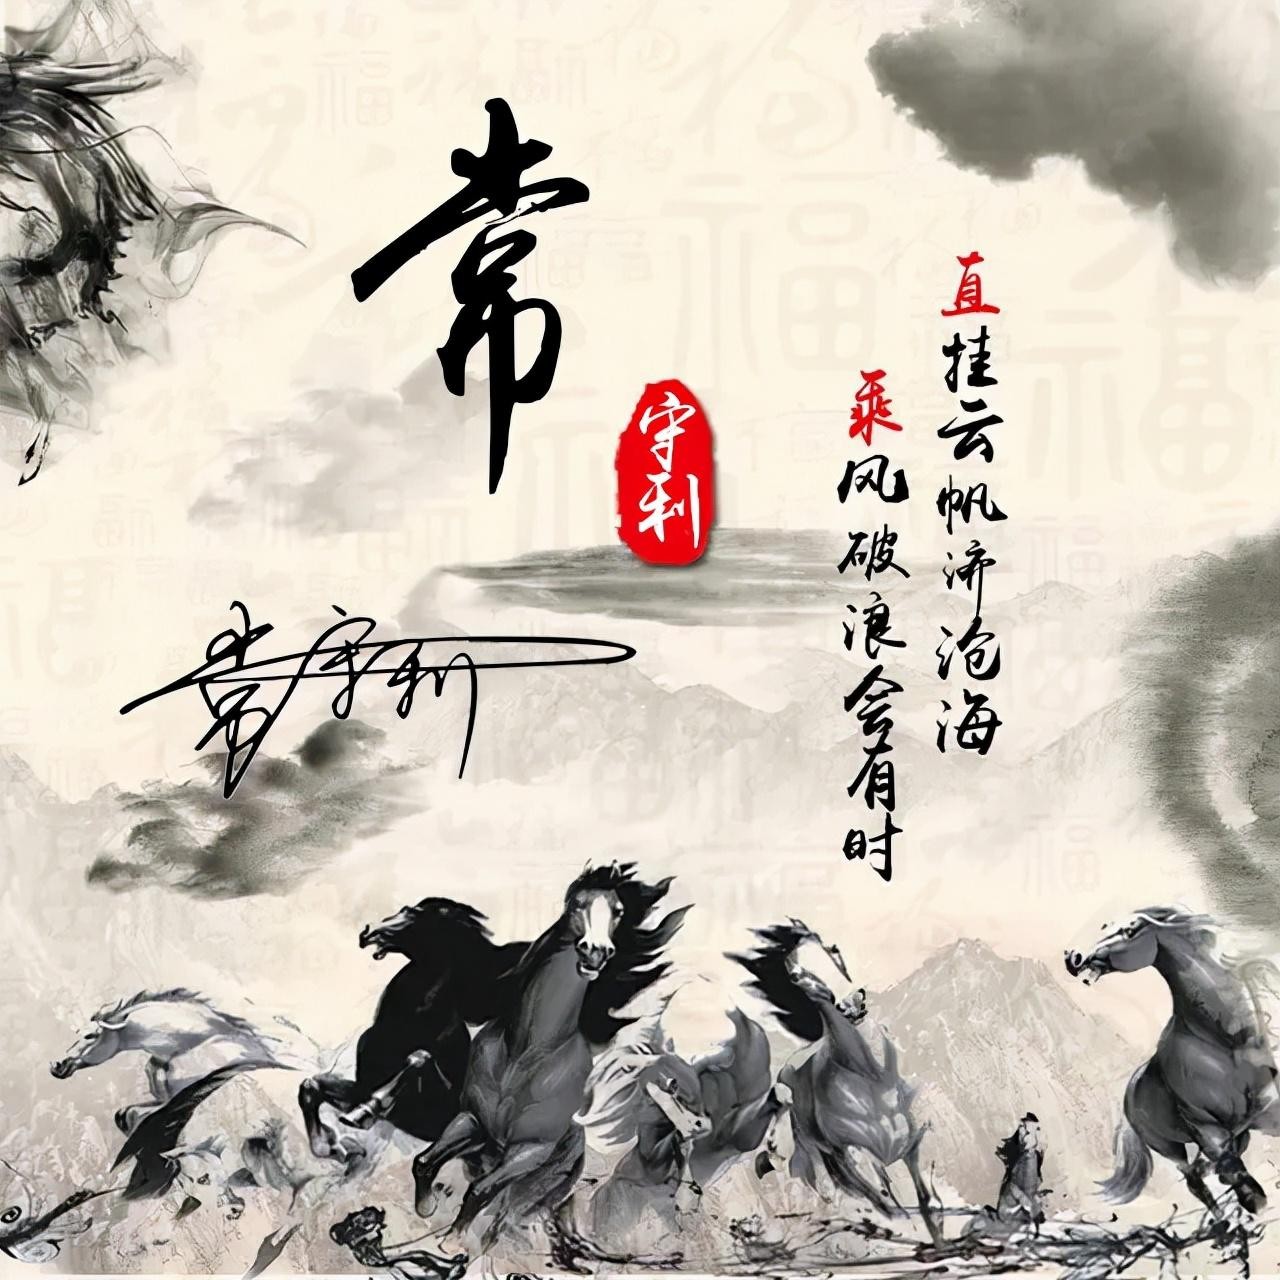 常
守利
常守利
乘风破浪会有时
直挂云帆济沧海
福